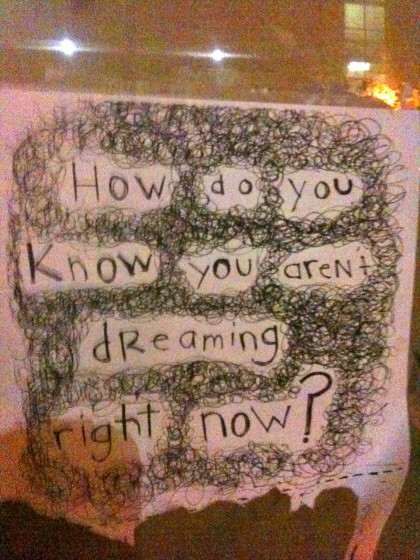 How do you
Know you aren't
dReaming
right now?